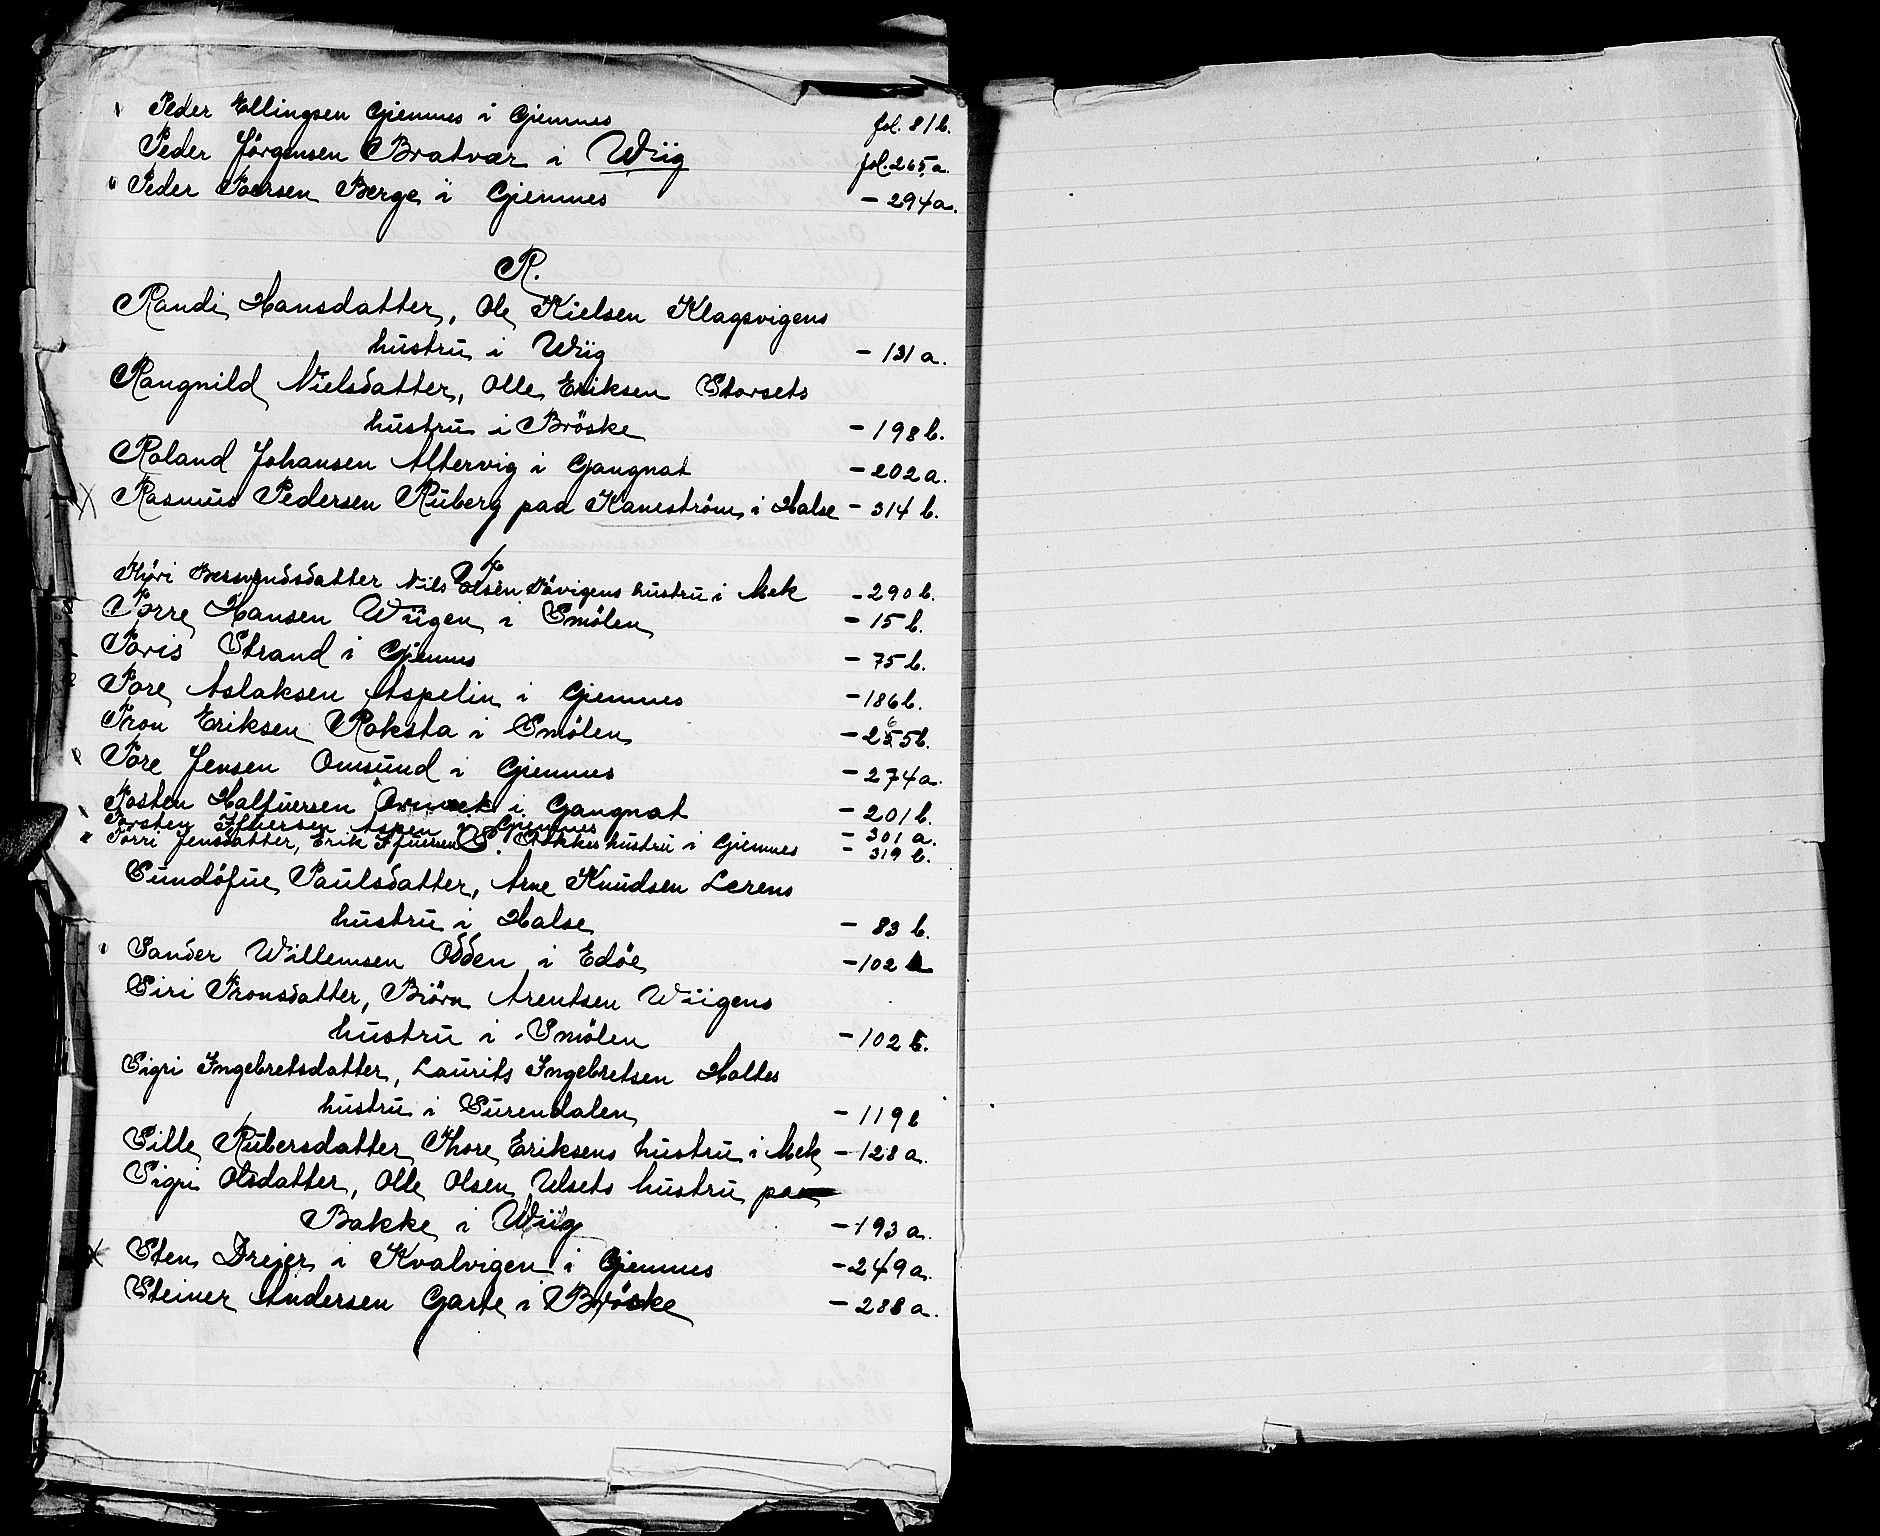 Peder Ellingsen Gjemnes i Gjemnes fol. 81 b.
Peder Jörgensen Bratvær i Wiig fol. 265 a.
Peder Iversen Berge i Gjemnes - 294 a.
R.
Randi Hansdatter, Ole Kielsen Klagsvigens
hustru i Wiig - 131 a.
Rangnild Nielsdatter, Olle Eriksen Storsets
hustru i Bröske - 198 b.
Roland Johansen Altervig i Gangnat - 202 a.
Rasmus Pedersen Ruberg paa Kaneström i Halse - 314 b.
T.
Thöri Nils Olsen hustru i Mek - 290 b.
Torre Hansen Wiigen i Smölen - 15 b.
Toris Strand i Gjemnes - 75 b.
Tore Aslaksen Aspelin i Gjemnes - 186 b.
Tron Eriksen Roksta i Smölen - 255 b.
Tore Jensen Omsund i Gjemnes - 274 a.
Tosten Halfuersen i Gangnat - 201 b.
Torsten Ifuersen Aspen i Gjemnes - 301 a.
Torri Jensdatter, Erik Ifuersen Bakkes hustru i Gjemnes - 319 b.
S.
Sundöfue Paulsdatter, Arne Knudsen Lerens
hustru i Halse - 83 b.
Sander Willemsen Odden i Edöe - 102 a
Siri Tronsdatter, Biörn Arentsen Wiigens
hustru i Smölen - 102 b.
Sigri Ingebretsdatter, Laurits Ingebretsen Holtes
hustru i Surendalen - 119 b
Sille Rubersdatter, Thore Eriksens hustru i Mek - 128 a.
Sigri Olsdatter, Olle Olsen Ulsets hustru paa
Bakke i Wiig - 193 a.
Sten Drejer i Kvalvigen i Gjemnes - 249 a.
Steiner Andersen Garte i Bröske - 288 a.